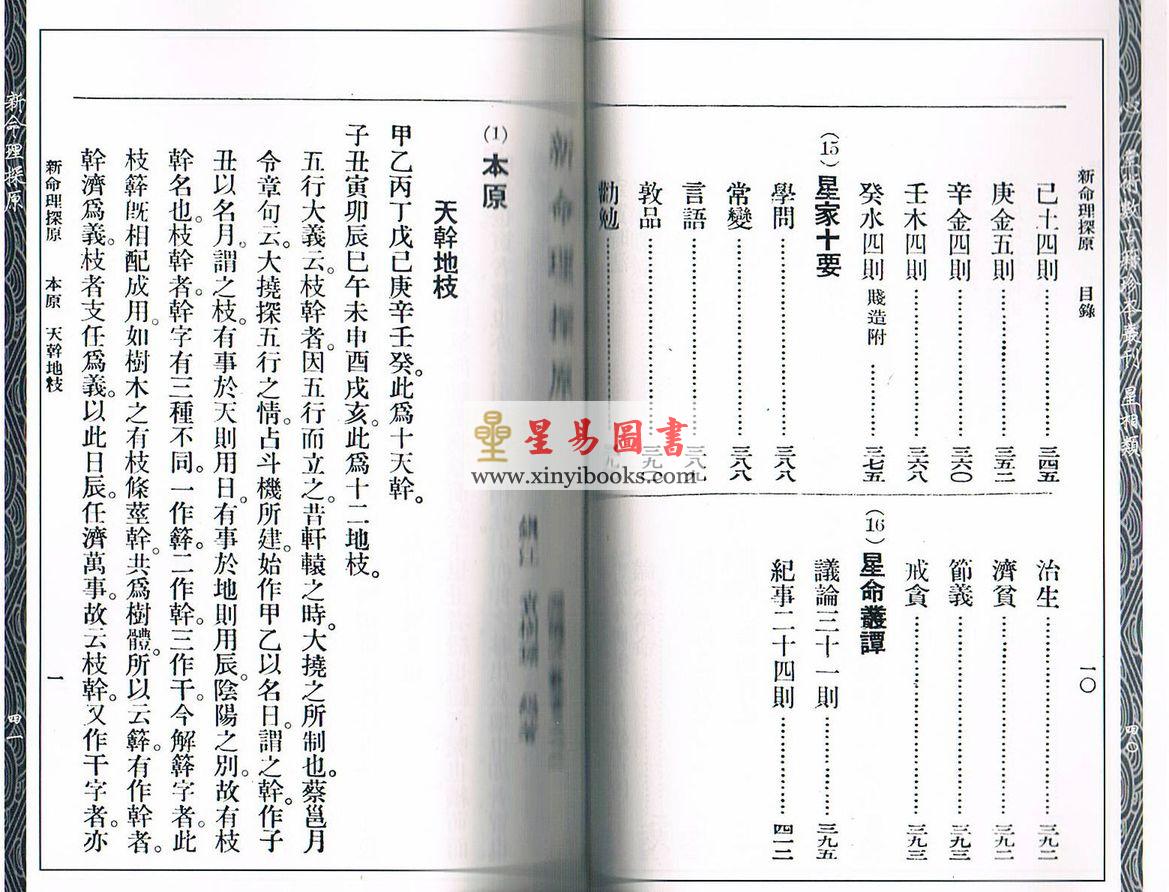 新命理探原　目錄
己土四則……三四五
庚金五則……三五二
辛金四則……三六〇
壬木四則……三六八
癸水四則 賤造附……三七五
(15)星家十要
學問……三八八
常變……三八八
言語……三八九
敦品
勸勉
治生……三九二
濟貧……三九二
節義……三九三
戒貪……三九三
(16)星命叢譚
議論三十一則……三九五
紀事二十四則……四一二
一〇
四〇
星易圖書
www.xinyibooks.com
新命理探原
(1)本原
天幹地枝
甲乙丙丁戊己庚辛壬癸。此爲十天幹。
子丑寅卯辰巳午未申酉戌亥。此爲十二地枝。
五行大義云。枝幹者。因五行而立之。昔軒轅之時。大撓之所制也。蔡邕月
令章句云。大撓探五行之情。占斗機所建。始作甲乙以名日。謂之幹。作子
丑以名月。謂之枝。有事於天則用日。有事於地則用辰。陰陽之別。故有枝
幹名也。枝幹者。幹字有三種不同。一作簳。二作幹。三作干。今解簳字者。此
枝簳旣相配成用。如樹木之有枝條莖幹。共爲樹體。所以云簳。有作幹者。
幹濟爲義。枝者支任爲義。以此日辰。任濟萬事。故云枝幹。又作干字者。亦
新命理探原　本原　天幹地枝
一
新命理探原
四一